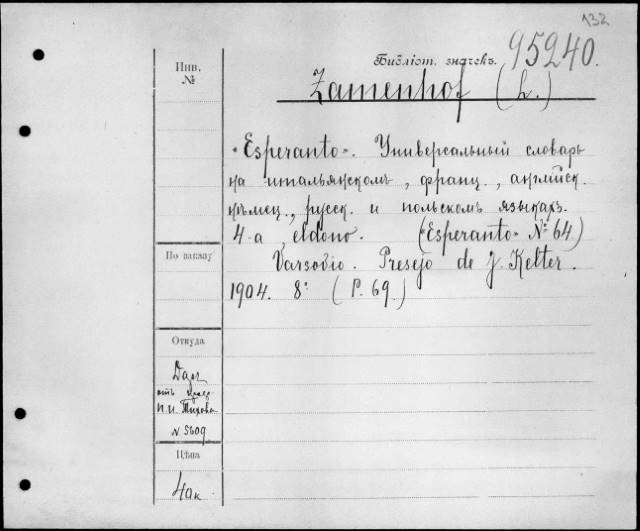 132
Библіот. значекъ. 95240.
Инв. №
Zamenhof (L.)
«Esperanto». Универсальный словарь
на итальянскомъ, франц., англійск.
нѣмец., русск. и польскомъ языкахъ.
4-a eldono. («Esperanto» № 64)
По заказу
Varsovio. Presejo de J. Kelter.
1904. 8° (P. 69.)
Откуда
Даръ
отъ
П.И. Тихова
N 5609
Цѣна
40к